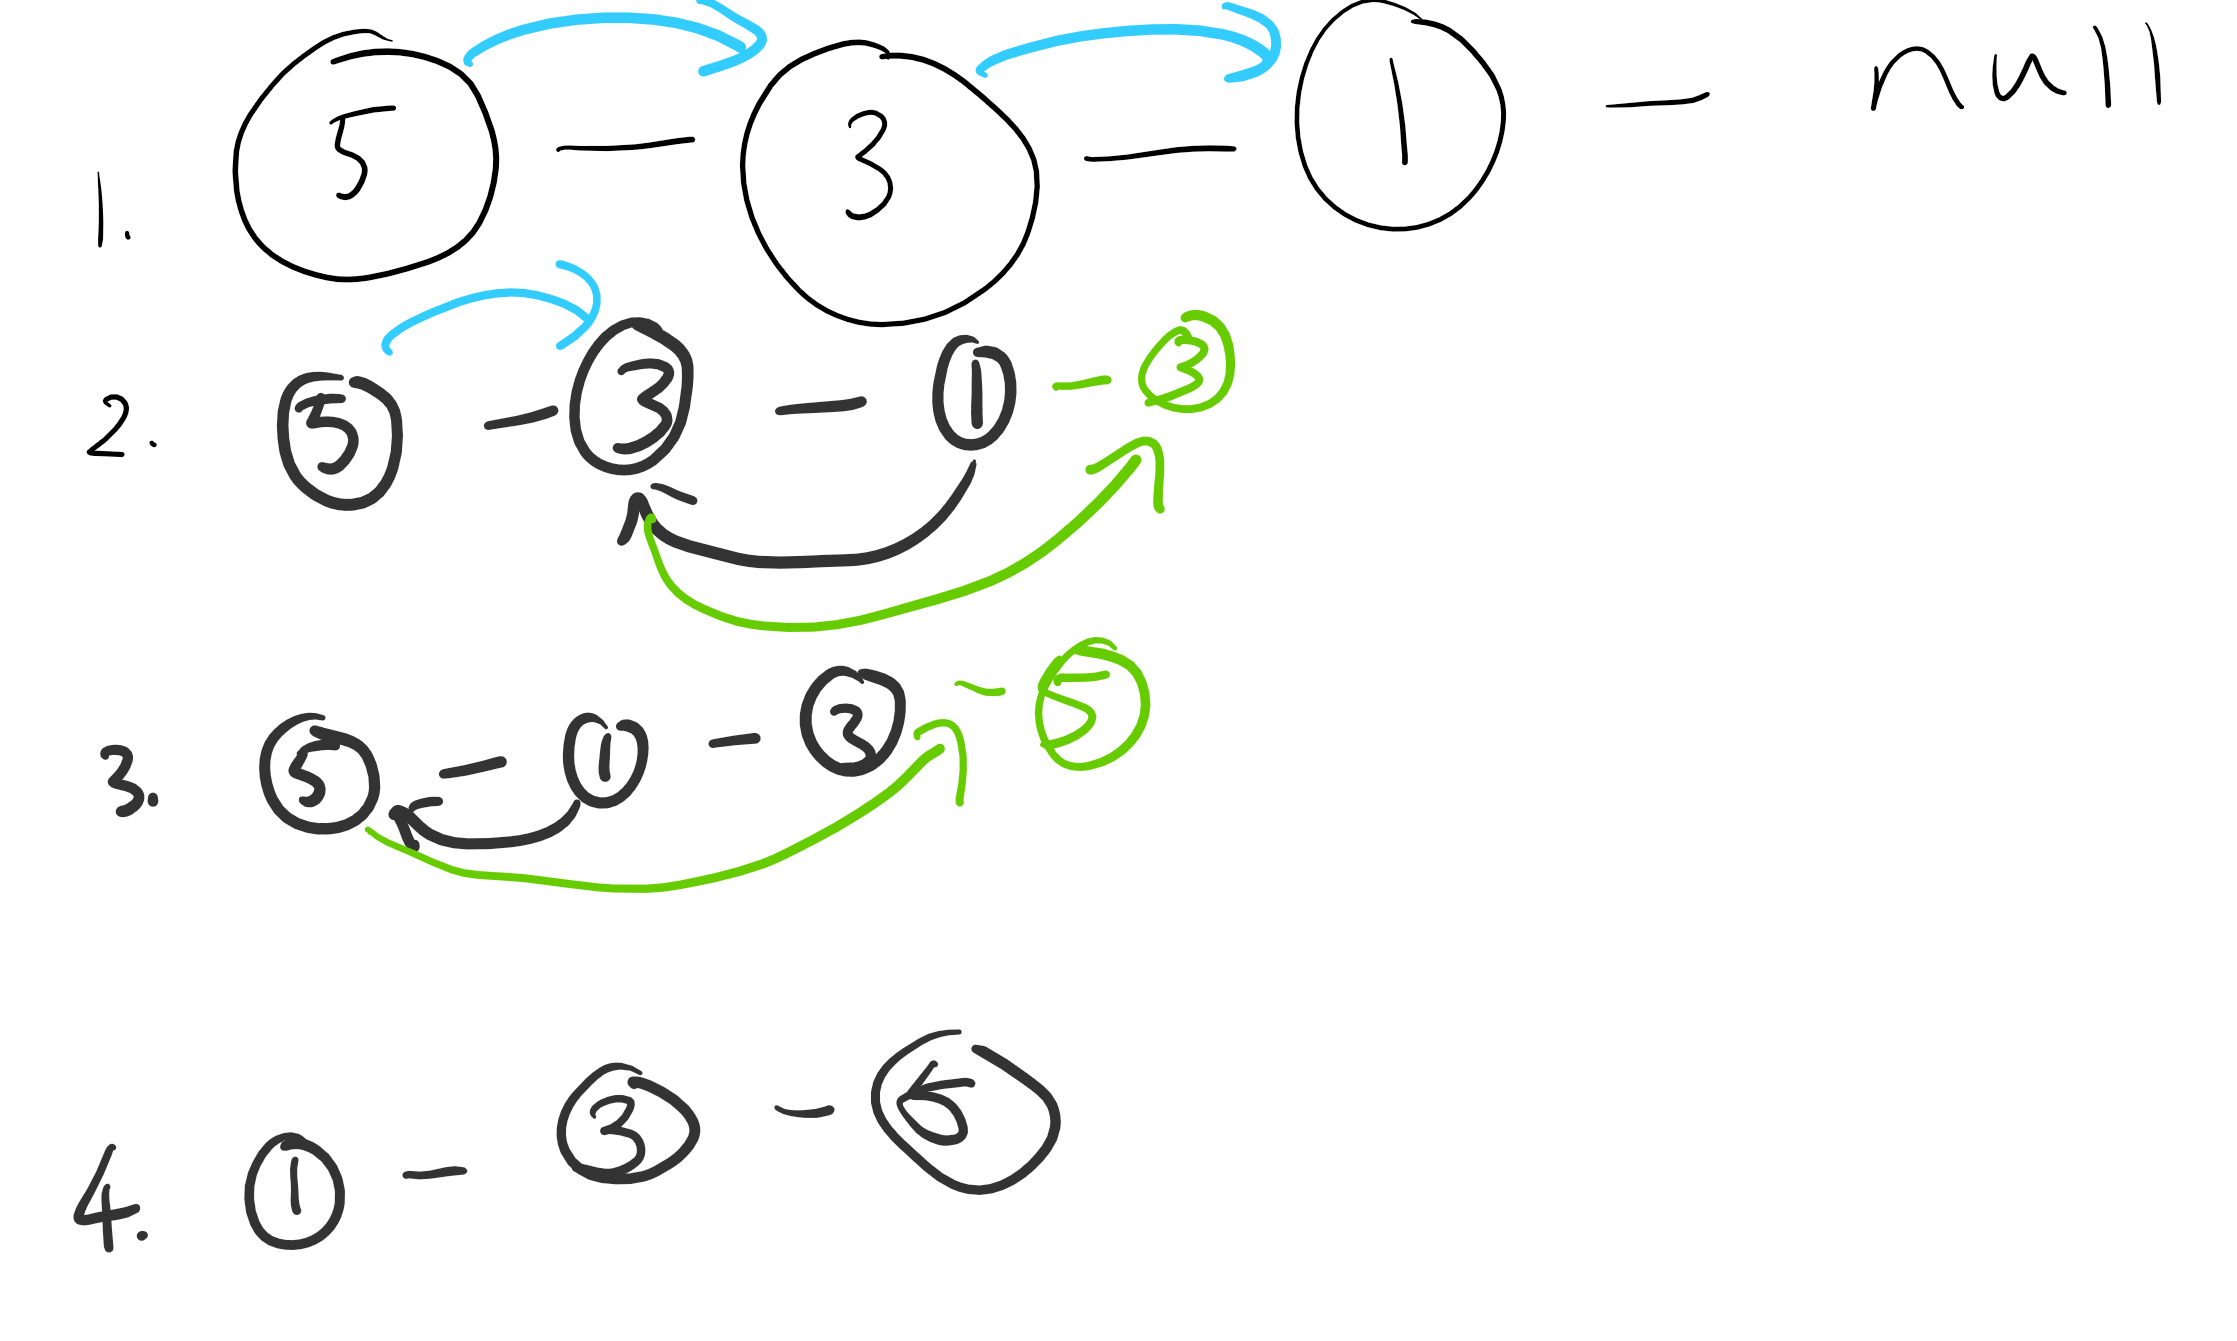 1. 5 — 3 — 1 — null
2. 5 — 3 — 1 — 3
3. 5 — 1 — 3 — 5
4. 1 — 3 — 5